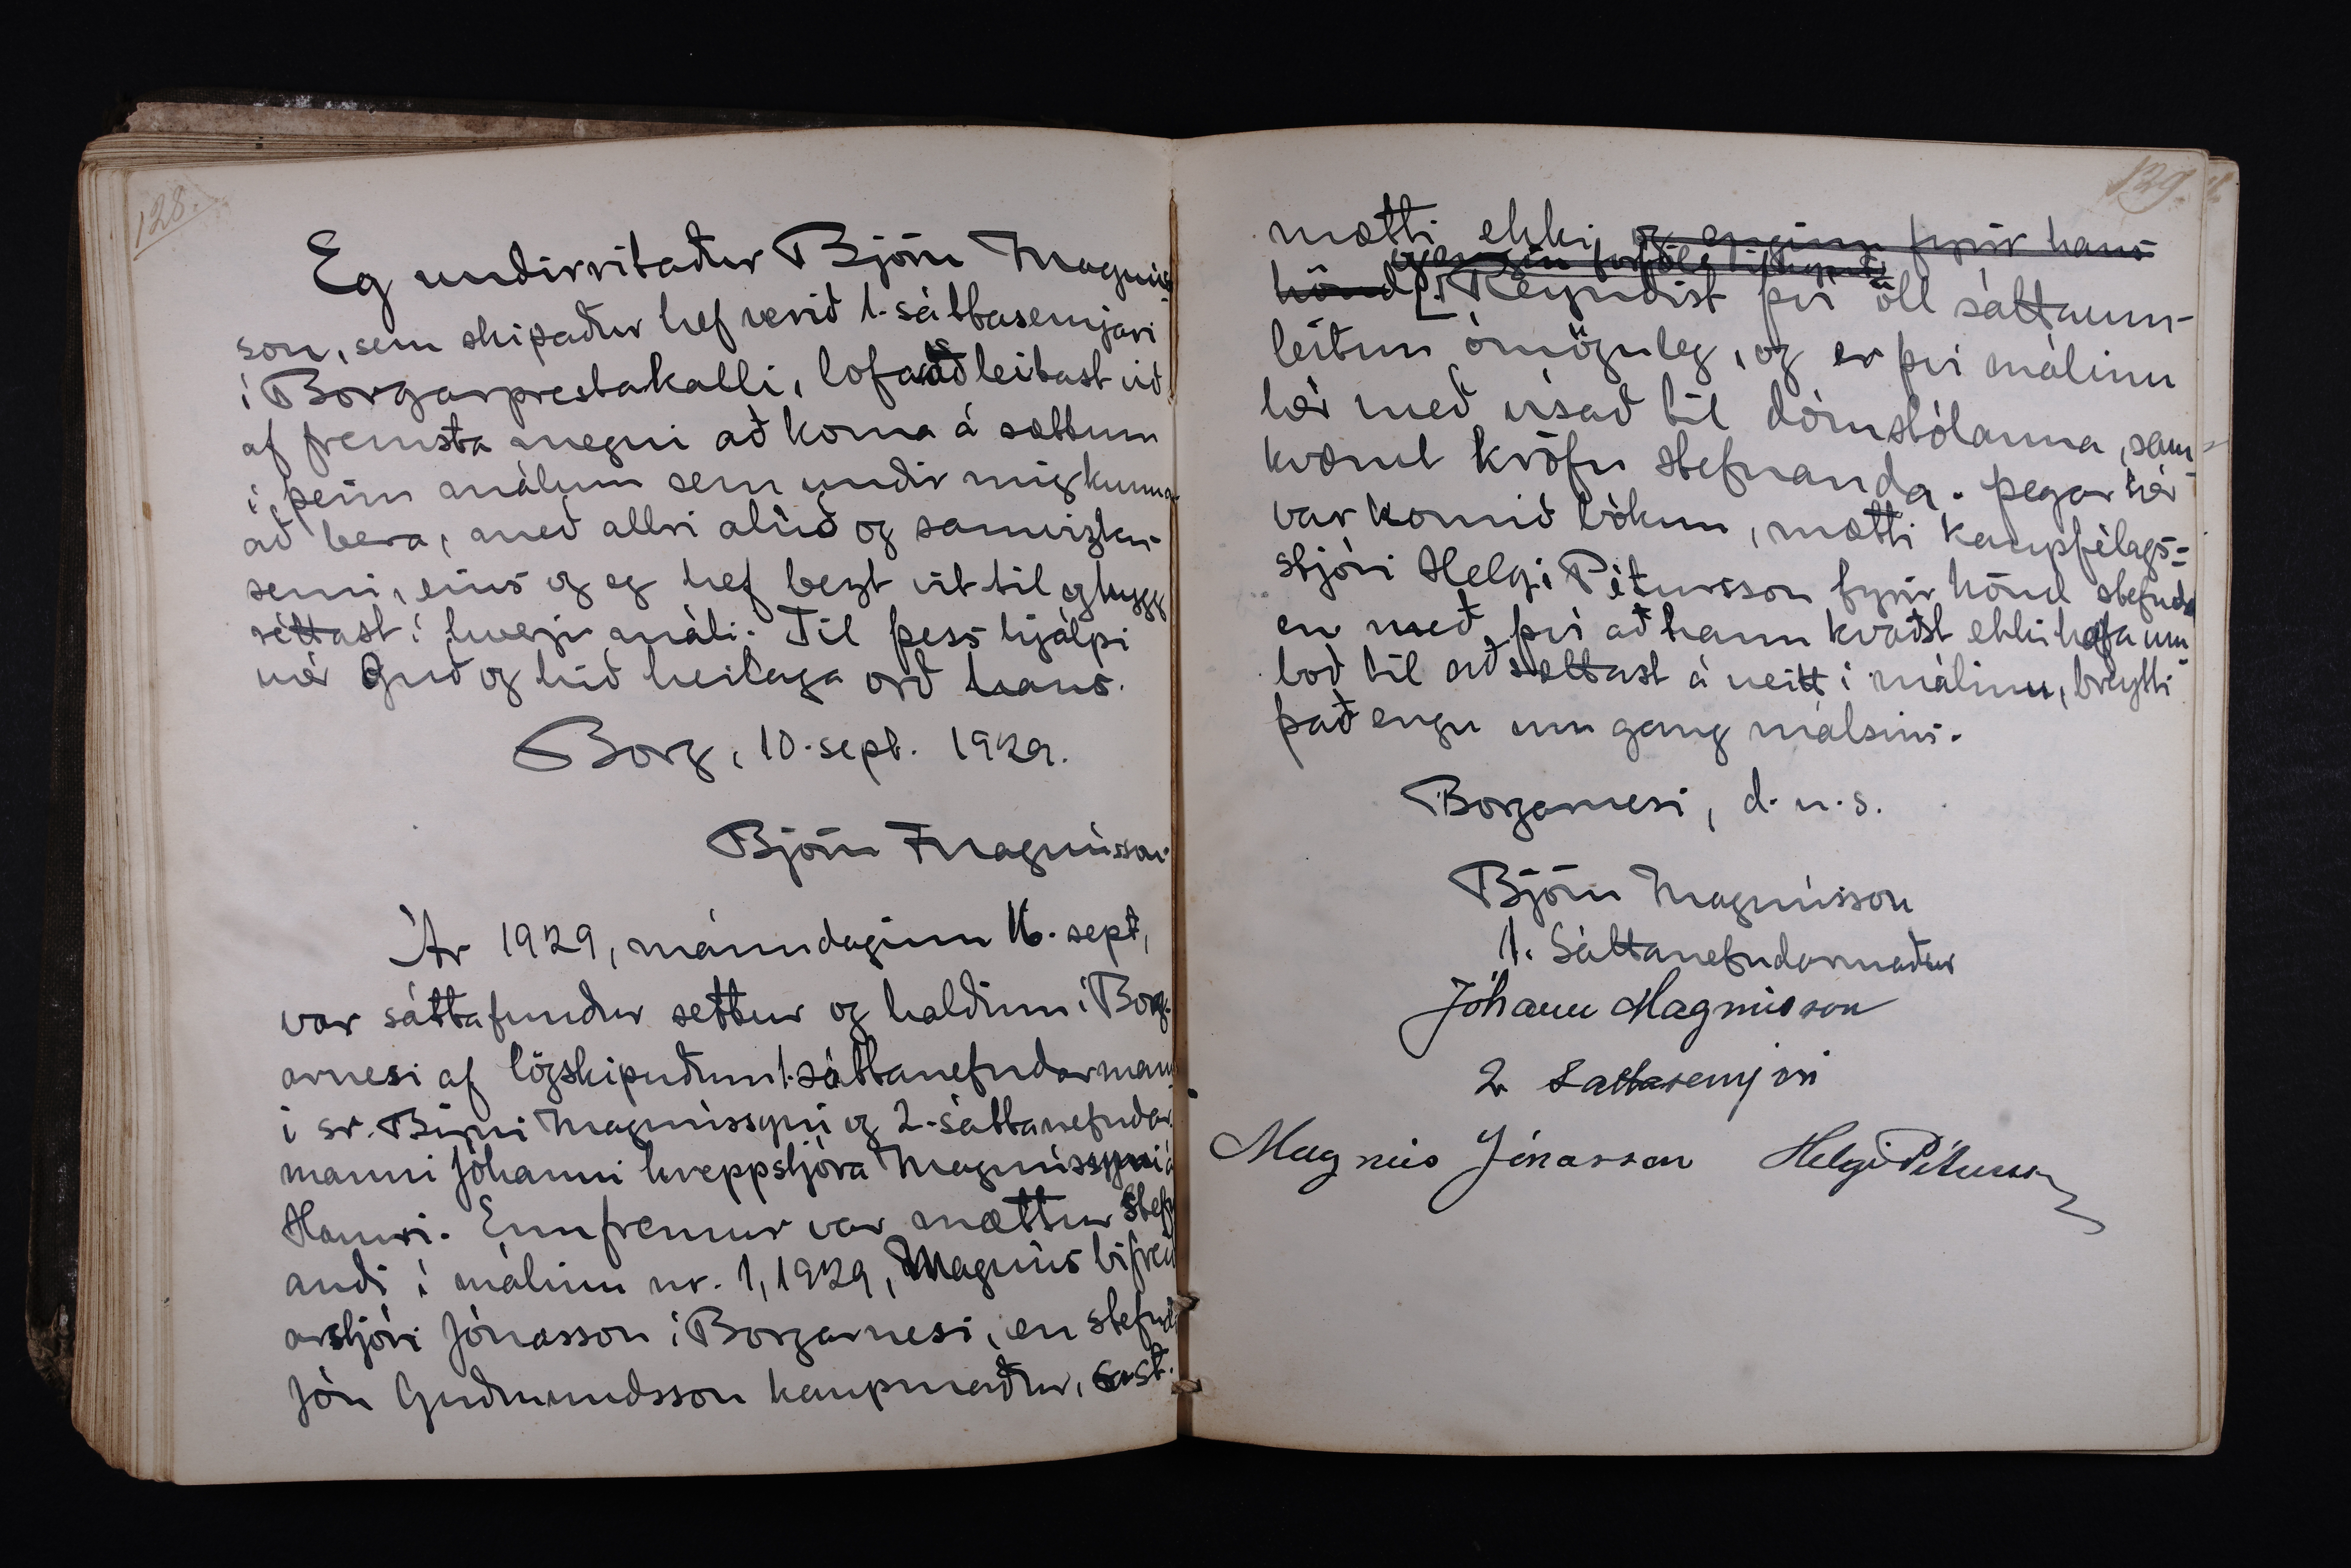 128.
Eg undirritaður Björn Magnús-
son, sem skipaður hef verið 1. sáttasemjari
í Borgarprestakalli, lofa að leitast við
af fremsta megni að koma á sættum
í þeim málum sem undir mig kunna
að bera, með allri alúð og samvizku-
semi, eins og eg hef bezt vit til og hygg
réttast í hverju máli. Til þess hjálpi
mér Guð og hið heilaga orð hans.
Borg, 10. sept. 1929.
Björn Magnússon
Ár 1929, mánudaginn 16. sept,
var sáttafundur settur og haldinn í Borg-
arnesi af lögskipuðum 1. sáttanefndarmann-
i sr. Birni Magnússyni og 2. sáttanefndar-
manni Jóhanni hreppstjóra Magnússyni á
Hamri. Ennfremur var mættur stefn-
andi í málinu nr. 1, 1929, Magnús bifreið-
arstjóri Jónasson í Borgarnesi, en stefndi
Jón Guðmundsson kaupmaður, s. st.
129.
mætti ekki og enginn fyrir hans
og engin forföll tilkynnt
hönd. Reyndist því öll sáttaum-
leitun ómöguleg, og er því málinu
hér með vísað til dómstólanna, sam-
kvæmt kröfu stefnanda. Þegar hér
var komið bókun, mætti kaupfélags-
stjóri Helgi Pétursson fyrir hönd stefnda
en með því að hann kvaðst ekki hafa um-
boð til að sættast á neitt í málinu, breytti
það engu um gang málsins.
Borgarnesi, d. u. s.
Björn Magnússon
1. Sáttanefndarmaður
Jóhann Magnússon
2 Sáttasemjari
Magnús Jónasson Helgi Pétursson